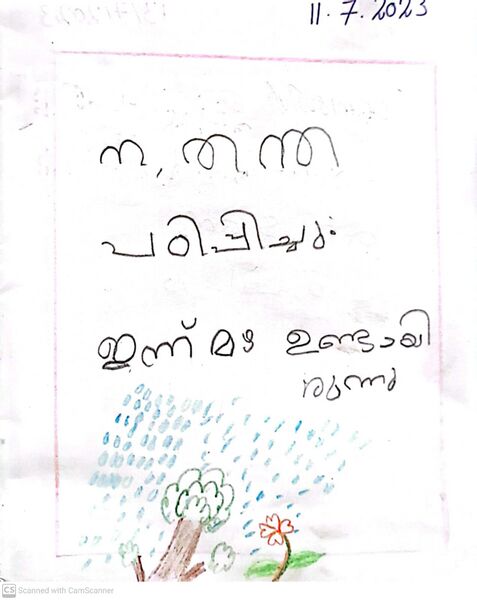 11.7.2023
ന, ത, ന്ത
പഠിപ്പിച്ചു.
ഇന്ന് മഴ ഉണ്ടായി
രുന്നു
CS Scanned with CamScanner